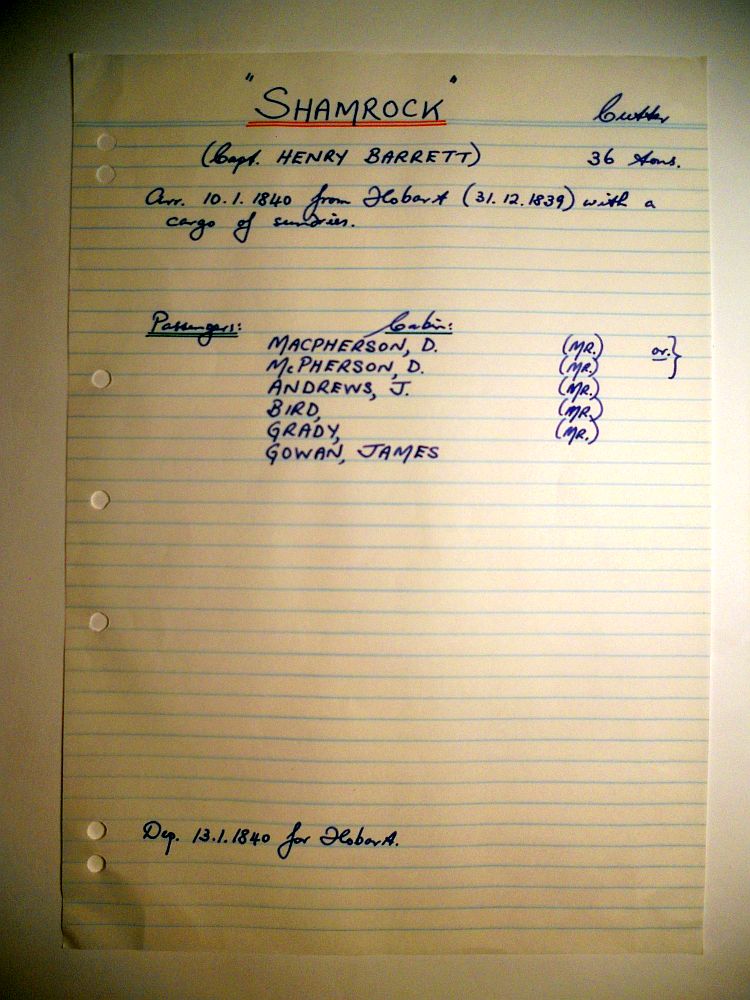 "SHAMROCK" Cutter
(Capt. HENRY BARRETT) 36 tons.
Arr. 10.1.1840 from Hobart (31.12.1839) with a
cargo of sundries.
Passengers: Cabin:
MACPHERSON, D. (MR.) or.}
McPHERSON, D. (MR.)
ANDREWS, J. (MR.)
BIRD, (MR.)
GRADY, (MR.)
GOWAN, JAMES
Dep. 13.1.1840 for Hobart.